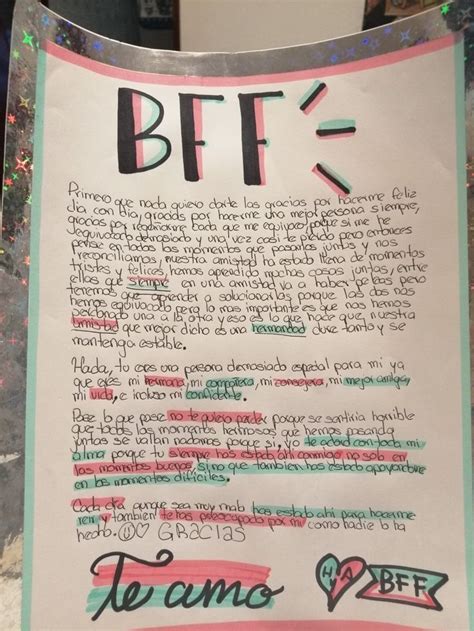 BFF
Primero que nada quiero darte las gracias por hacerme feliz
día con día, gracias por hacerme una mejor persona siempre,
gracias por cada que me equivoco, porque si me
e equivocado demasiado y una vez casi te pierdo pero entonces
pense en todos los momentos que pasamos juntas y nos
reconciliamos, nuestra amistad a estado llena de momentos
tristes y felices, hemos aprendido muchas cosas juntas, entre
ellas que siempre en una amistad va a haber peleas pero
tenemos que aprender a solucionarlas porque las dos nos
hemos equivocado pero lo mas importante es que nos hemos
perdonado una a la otra y eso es lo que hace que, nuestra
amistad que mejor dicho es una hermandad dure tanto y se
mantenga estable.
tu eres una persona demasiado espcial para mi ya
que eres mi hermana, mi compañera, mi consejera, mi mejor amiga,
mi vida, e incluso mi confidente.
Pase lo que pase no te quiero perder porque se sentiria horrible
que todos los momentos hermosos que hemos pasando
juntas se vallan nadamas porque si, yo te adoro con toda mi
alma porque tu siempre has estado ahi conmigo no solo en
los momentos buenos, si no que tambien has estado apoyandome
en los momentos dificiles.
Cada dia aunque sea muy malo has estado ahi para hacerme
reir y tambien te has preocupado por mi como nadie lo ha
hecho. GRACIAS
Te amo
H A
BFF